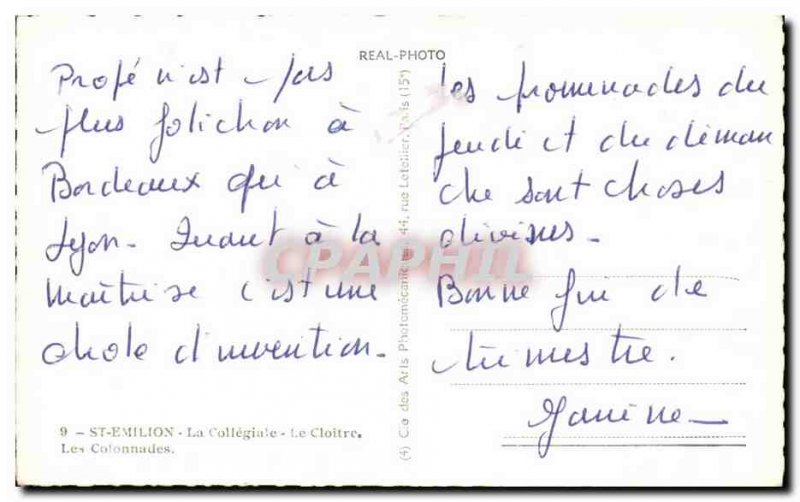 REAL-PHOTO
Profé n'est pas
plus folichon à
Bordeaux qui à
Lyon - Quant à la
maîtrise c'est une
chose d'invention -
les promenades du
jeudi et du diman
che sont choses
divines -
Bonne fin de
trimestre.
Janine
9 - ST-EMILION - La Collégiale - Le Cloître.
Les Colonnades.
(4) Cie des Arts Photomécaniques, 44, rue Letellier, Paris (15e)
CPAPHIL